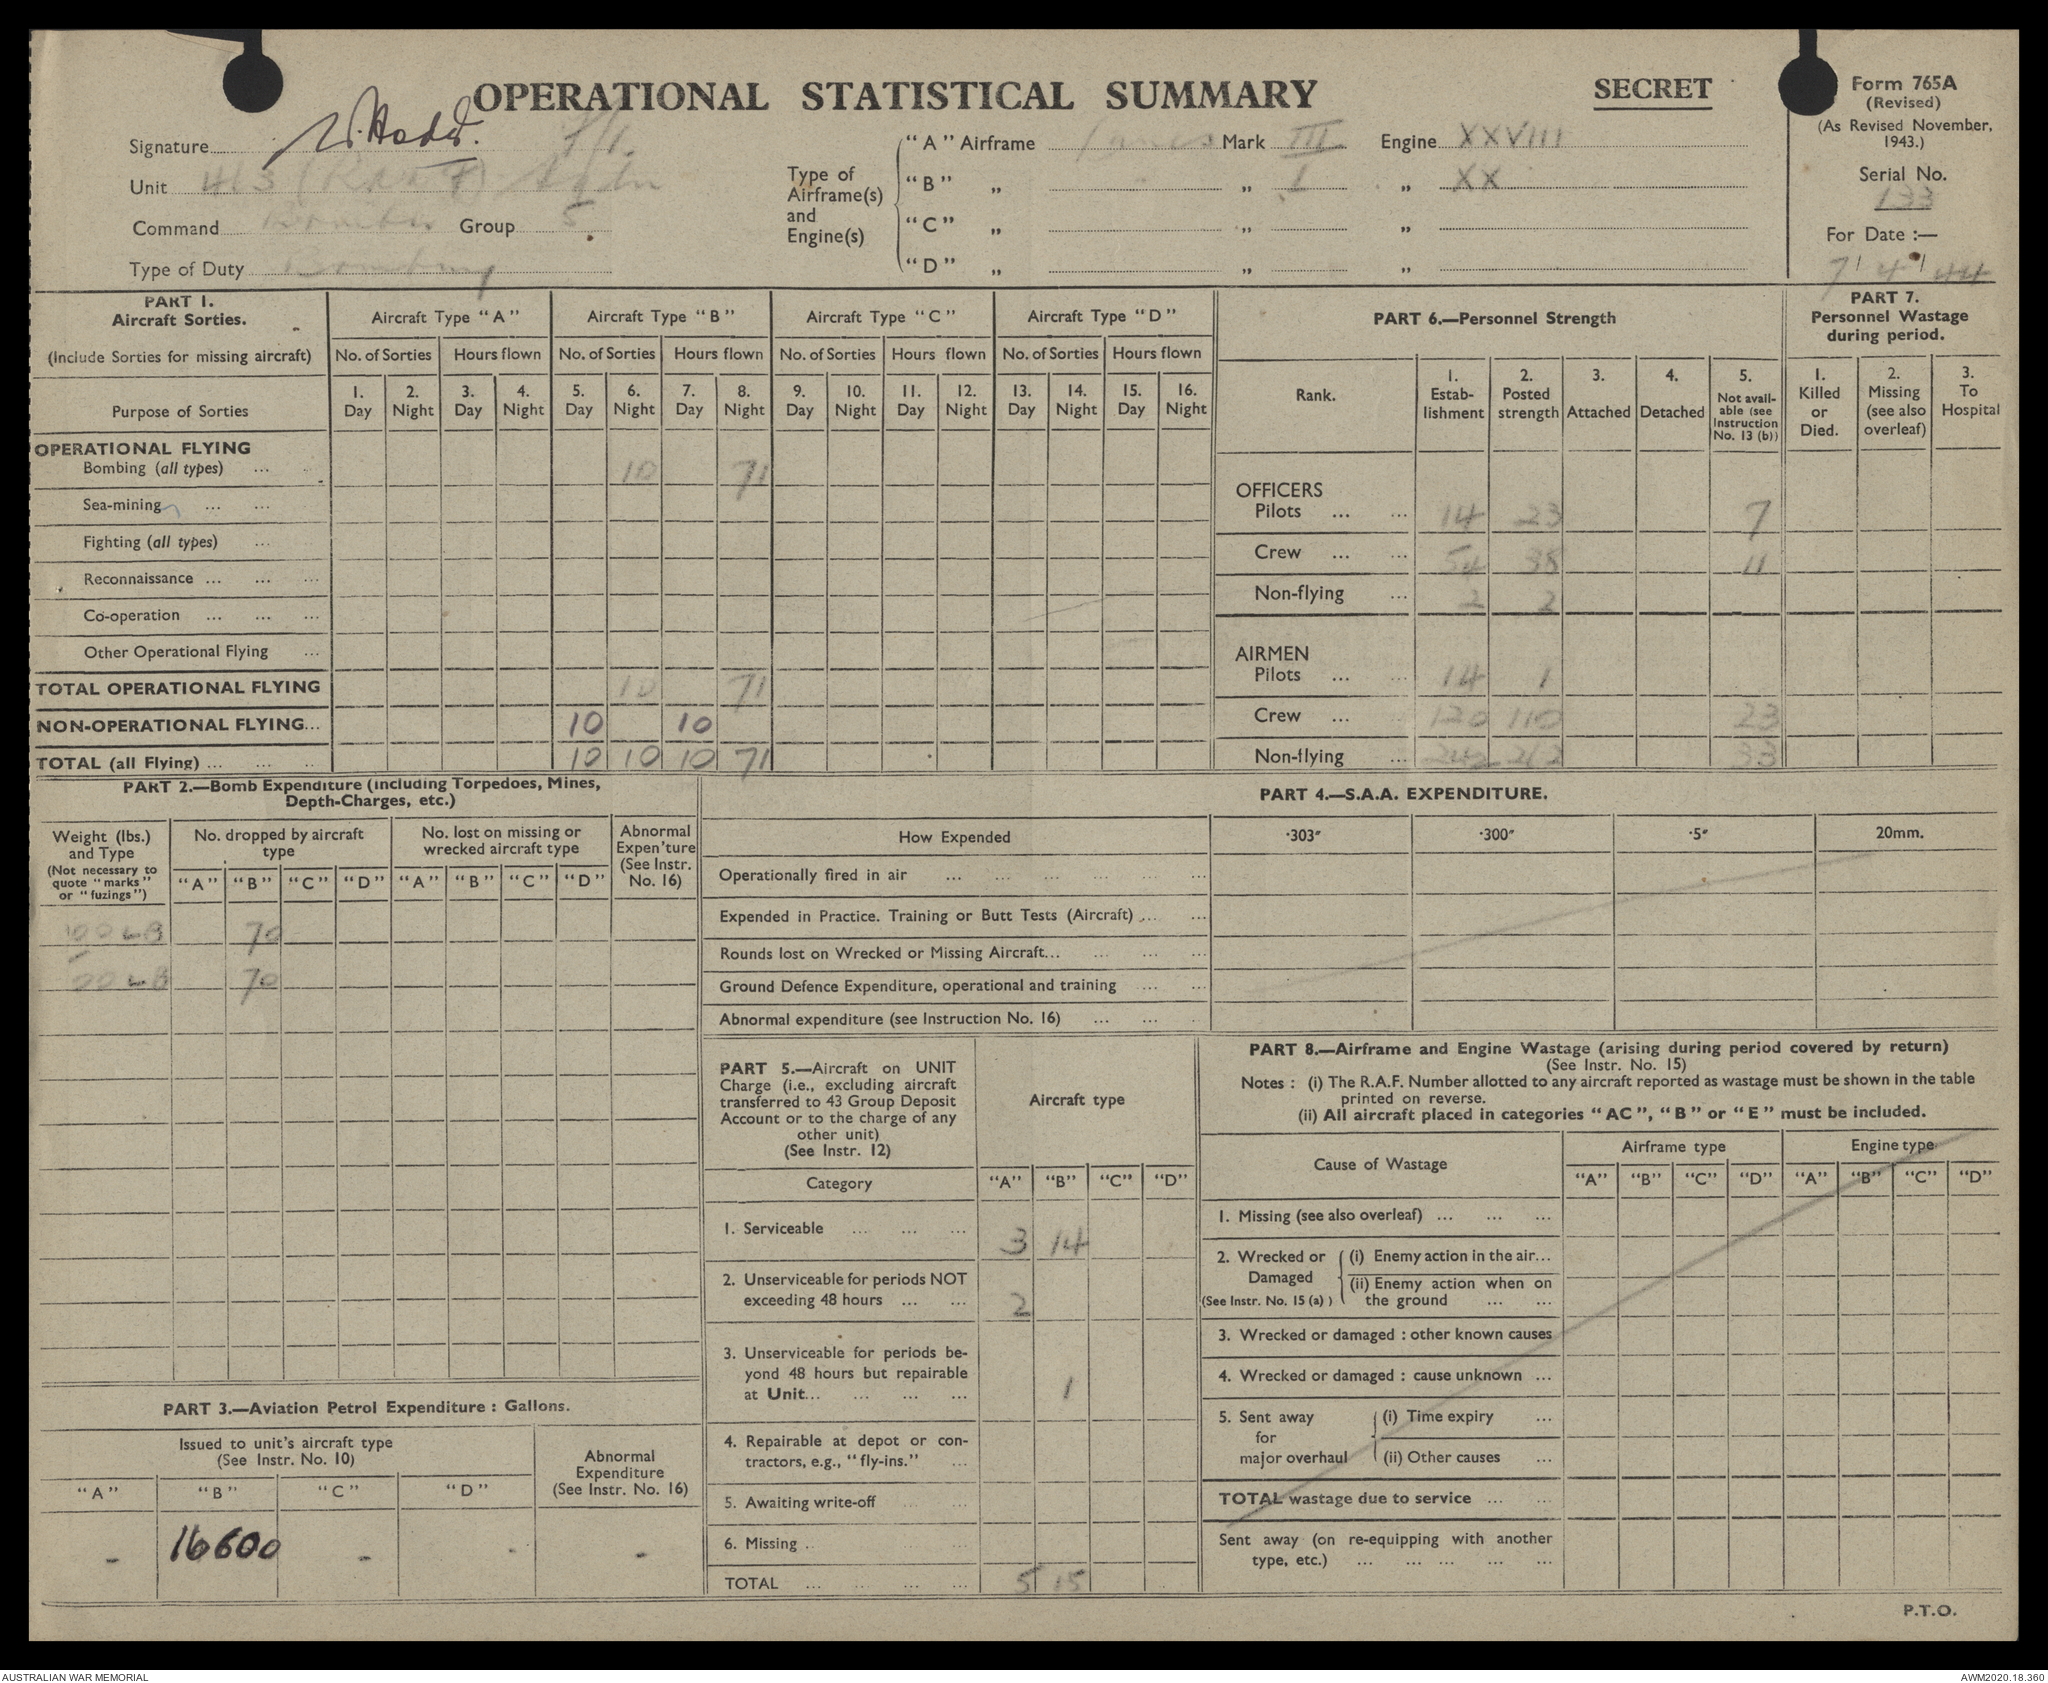 OPERATIONAL STATISTICAL SUMMARY
SECRET
Form 765A
(Revised)
(As Revised November, 1943.)
Serial No.
133
For Date :—
7 4 44
Signature
Unit 463 (RAAF) Sqdn
Command Bomber Group 5
Type of Duty Bombing
Type of Airframe(s) and Engine(s)
"A" Airframe Lancs Mark III Engine XXVIII
"B" „ „ I „ XX
"C" „ „ „
"D" „ „ „
PART 1.
Aircraft Sorties.
(Include Sorties for missing aircraft)
Purpose of Sorties
Aircraft Type "A" Aircraft Type "B" Aircraft Type "C" Aircraft Type "D"
No. of Sorties Hours flown No. of Sorties Hours flown No. of Sorties Hours flown No. of Sorties Hours flown
1. Day 2. Night 3. Day 4. Night 5. Day 6. Night 7. Day 8. Night 9. Day 10. Night 11. Day 12. Night 13. Day 14. Night 15. Day 16. Night
OPERATIONAL FLYING
Bombing (all types) ... 10 71
Sea-mining ... ...
Fighting (all types) ...
Reconnaissance ... ... ...
Co-operation ... ... ...
Other Operational Flying ...
TOTAL OPERATIONAL FLYING 10 71
NON-OPERATIONAL FLYING... 10 10
TOTAL (all Flying) ... ... ... 10 10 10 71
PART 6.—Personnel Strength
Rank.
1. Estab-lishment
2. Posted strength
3. Attached
4. Detached
5. Not avail-able (see Instruction No. 13 (b))
PART 7.
Personnel Wastage during period.
1. Killed or Died.
2. Missing (see also overleaf)
3. To Hospital
OFFICERS
Pilots ... ... 14 23 7
Crew ... ... 54 38 11
Non-flying ... 2 2
AIRMEN
Pilots ... ... 14 1
Crew ... ... 120 110 23
Non-flying ... 242 262 33
PART 2.—Bomb Expenditure (including Torpedoes, Mines, Depth-Charges, etc.)
Weight (lbs.) and Type
(Not necessary to quote "marks" or "fuzings")
No. dropped by aircraft type
No. lost on missing or wrecked aircraft type
Abnormal Expen'ture (See Instr. No. 16)
"A" "B" "C" "D" "A" "B" "C" "D"
LB 70
LB 70
PART 3.—Aviation Petrol Expenditure : Gallons.
Issued to unit's aircraft type
(See Instr. No. 10)
Abnormal Expenditure
(See Instr. No. 16)
"A" "B" "C" "D"
- 16600 - - -
PART 4.—S.A.A. EXPENDITURE.
How Expended ·303" ·300" ·5" 20mm.
Operationally fired in air ... ... ... ... ... ...
Expended in Practice. Training or Butt Tests (Aircraft) ... ...
Rounds lost on Wrecked or Missing Aircraft... ... ... ...
Ground Defence Expenditure, operational and training ... ...
Abnormal expenditure (see Instruction No. 16) ... ... ...
PART 5.—Aircraft on UNIT Charge (i.e., excluding aircraft transferred to 43 Group Deposit Account or to the charge of any other unit)
(See Instr. 12)
Aircraft type
Category "A" "B" "C" "D"
1. Serviceable ... ... ... 3 14
2. Unserviceable for periods NOT exceeding 48 hours ... ... 2
3. Unserviceable for periods be-yond 48 hours but repairable at Unit... ... ... ... 1
4. Repairable at depot or con-tractors, e.g., "fly-ins." ...
5. Awaiting write-off ... ...
6. Missing .. ...
TOTAL ... ... ... ... 5 15
PART 8.—Airframe and Engine Wastage (arising during period covered by return)
(See Instr. No. 15)
Notes : (i) The R.A.F. Number allotted to any aircraft reported as wastage must be shown in the table printed on reverse.
(ii) All aircraft placed in categories "AC", "B" or "E" must be included.
Cause of Wastage
Airframe type Engine type
"A" "B" "C" "D" "A" "B" "C" "D"
1. Missing (see also overleaf) ... ... ...
2. Wrecked or Damaged (See Instr. No. 15 (a) )
(i) Enemy action in the air...
(ii) Enemy action when on the ground ... ...
3. Wrecked or damaged : other known causes
4. Wrecked or damaged : cause unknown ...
5. Sent away for major overhaul
(i) Time expiry ...
(ii) Other causes ...
TOTAL wastage due to service ... ...
Sent away (on re-equipping with another type, etc.) ... ... ... ... ...
P.T.O.
AUSTRALIAN WAR MEMORIAL
AWM2020.18.360